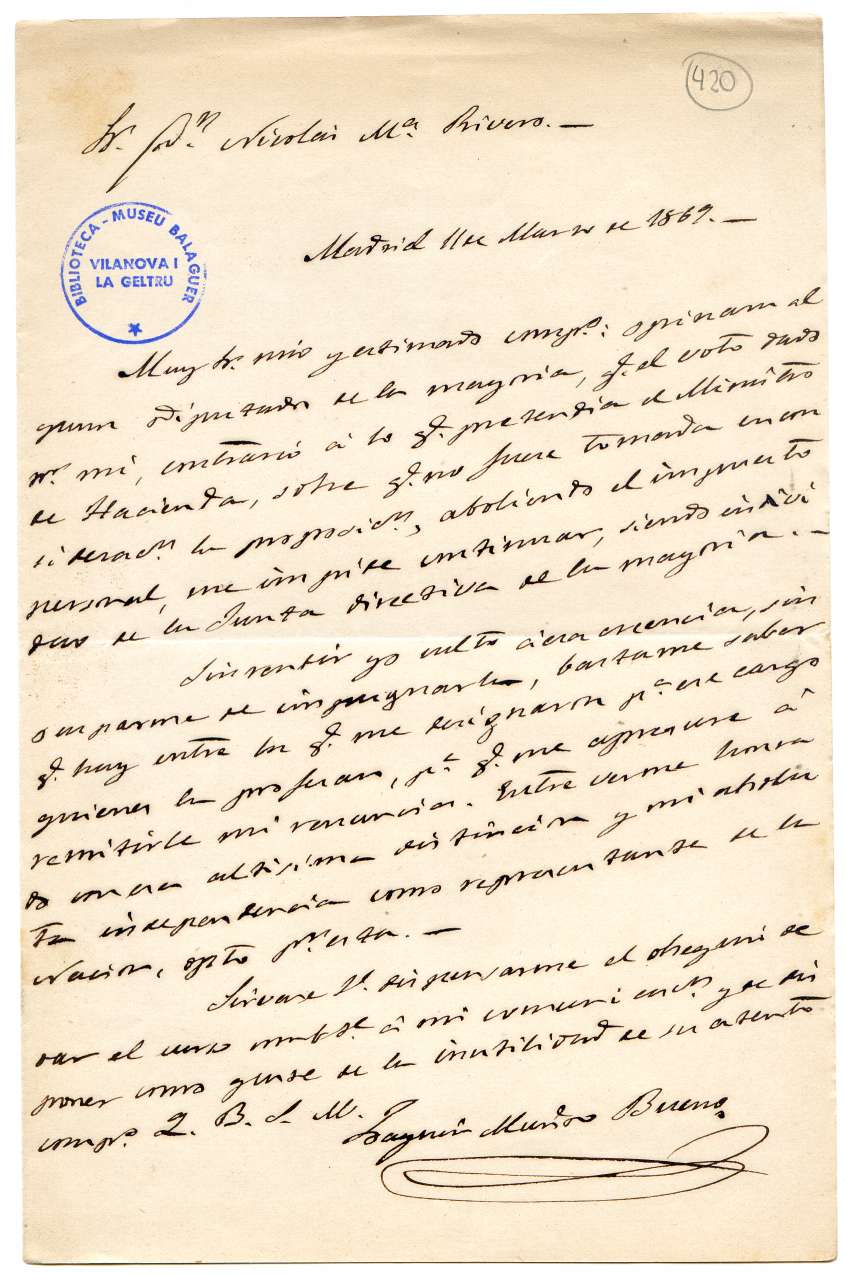 420
Sr. Dn. Nicolás Ma. Rivero. —
BIBLIOTECA - MUSEU BALAGUER
VILANOVA I
LA GELTRU
Madrid 11 de Marzo de 1869. —
Muy Sr. mio y estimado compo.: opinaron al
gunos Diputados de la mayoria, q. el voto dado
pr. mi, contrario á lo q. pretendia el Ministro
de Hacienda, sobre q. no fuese tomada en con
sideracn. la proposicn., aboliendo el impuesto
personal, me impide continuar, siendo indivi
duo de la Junta directiva de la mayoria. —
Sin rendir yo culto á esa creencia, sin
ocuparme de impugnarla, bastame saber
q. hay entre los q. me designaron pa. ese cargo
quienes la profesan, pa. q. me apresure á
remitirle mi renuncia. Entre verme honra
do con esa altisima distincion y mi absolu
ta independencia como representante de la
Nacion, opto pr. esta. —
Sirvase V. dispensarme el obsequio de
dar el curso a mi comunicacn. y de dis
poner como guste de la inutilidad de su atento
compo. Q. B. S. M.
Joaquin Muñoz Bueno